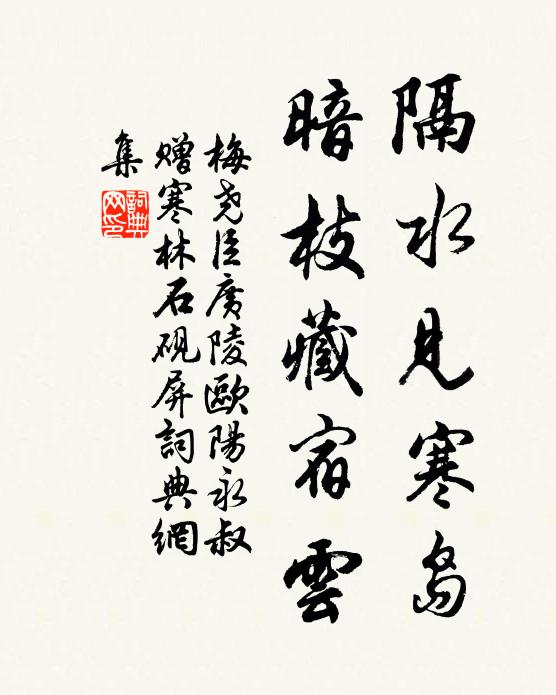 隔水見寒島
暗枝藏宿雲
梅堯臣廣陵歐陽永叔
贈寒林石硯屏詞典網
集
詞典
网印